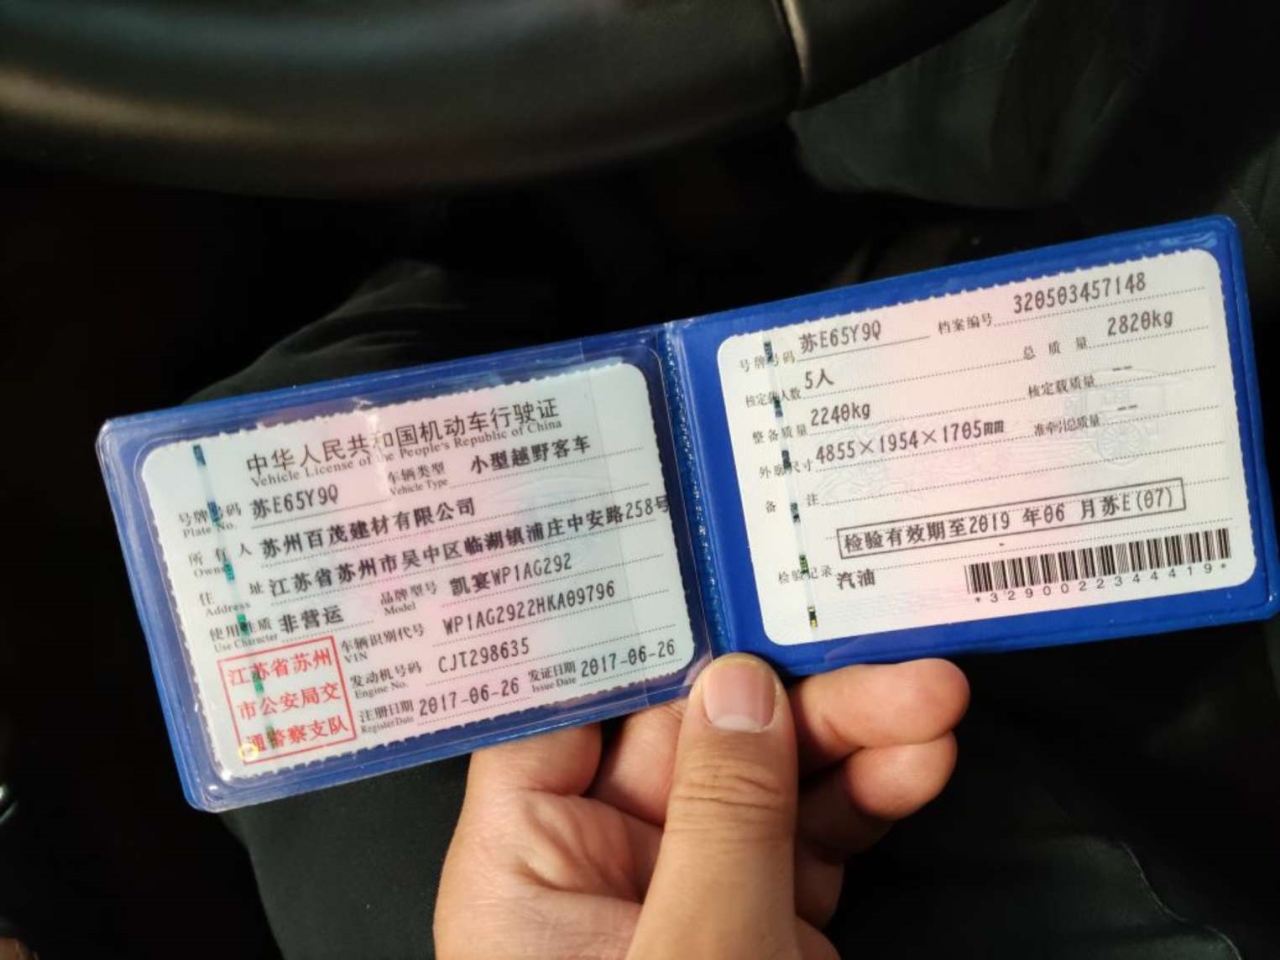 中华人民共和国机动车行驶证
Vehicle License of the People's Republic of China
号牌号码 Plate No. 苏E65Y9Q 车辆类型 Vehicle Type 小型越野客车
所有人 Owner 苏州百茂建材有限公司
住址 Address 江苏省苏州市吴中区临湖镇浦庄中安路258号
使用性质 Use Character 非营运 品牌型号 Model 凯宴WP1AG292
车辆识别代号 VIN WP1AG2922HKA09796
发动机号码 Engine No. CJT298635
注册日期 Register Date 2017-06-26 发证日期 Issue Date 2017-06-26
江苏省苏州
市公安局交
通警察支队
号牌号码 苏E65Y9Q 档案编号 320503457148
核定载人数 5人 总质量 2820kg
整备质量 2240kg 核定载质量 --
外廓尺寸 4855×1954×1705mm 准牵引总质量 --
备注
检验有效期至2019 年06 月苏E(07)
检验记录
汽油
*3290022344419*